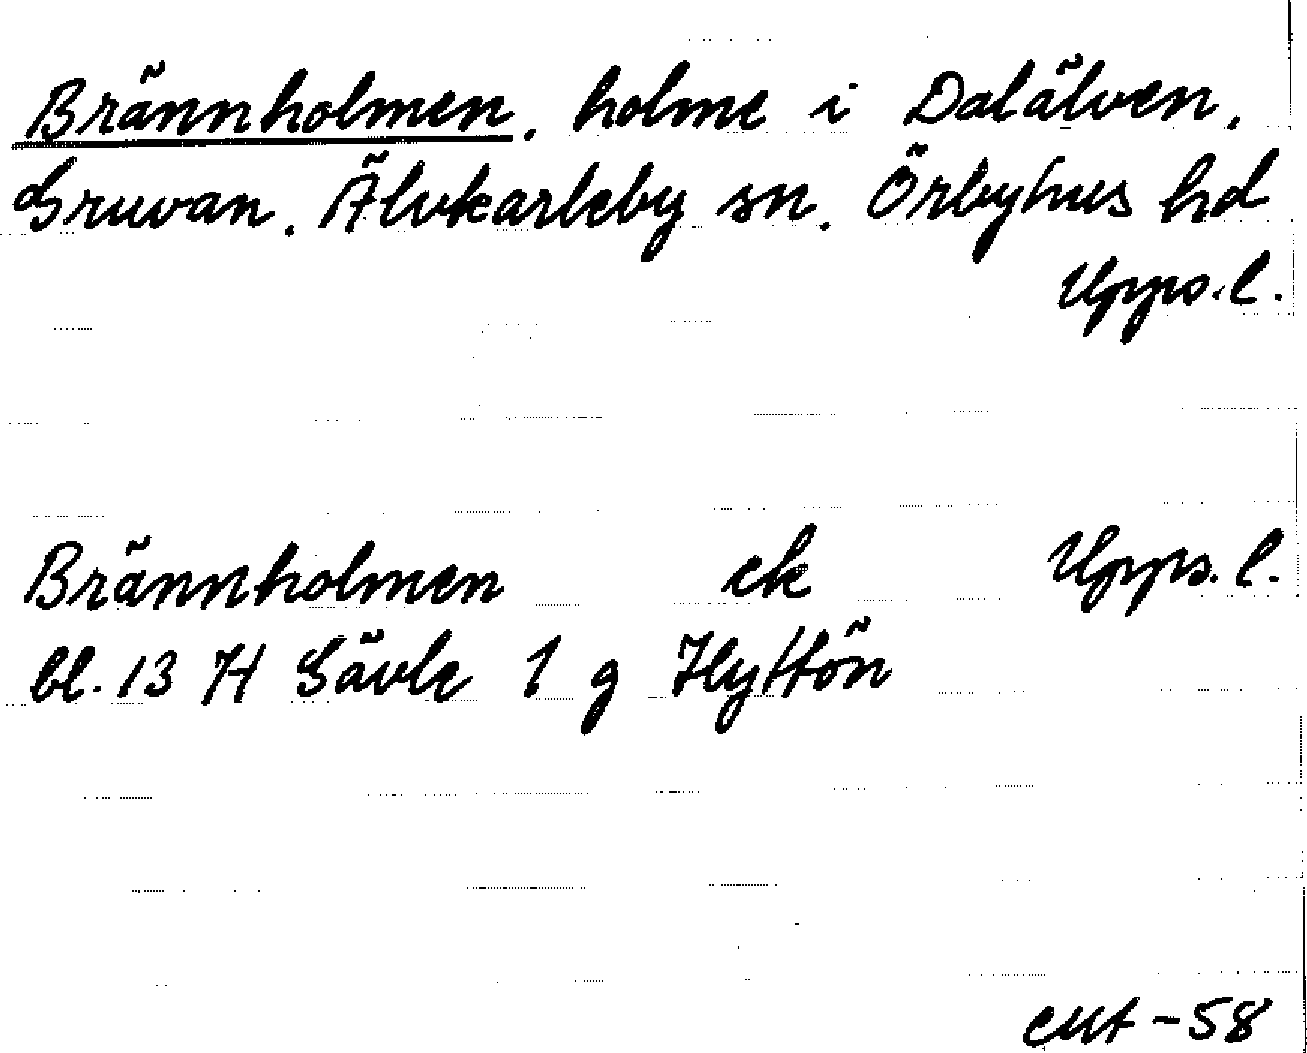 Brännholmen, holme i Dalälven,
Gruvan, Älvkarleby sn, Örbyhus hd
Upps. l.
Brännholmen ek Upps. l.
bl. 13 H Gävle 1 g Hyttön
-58